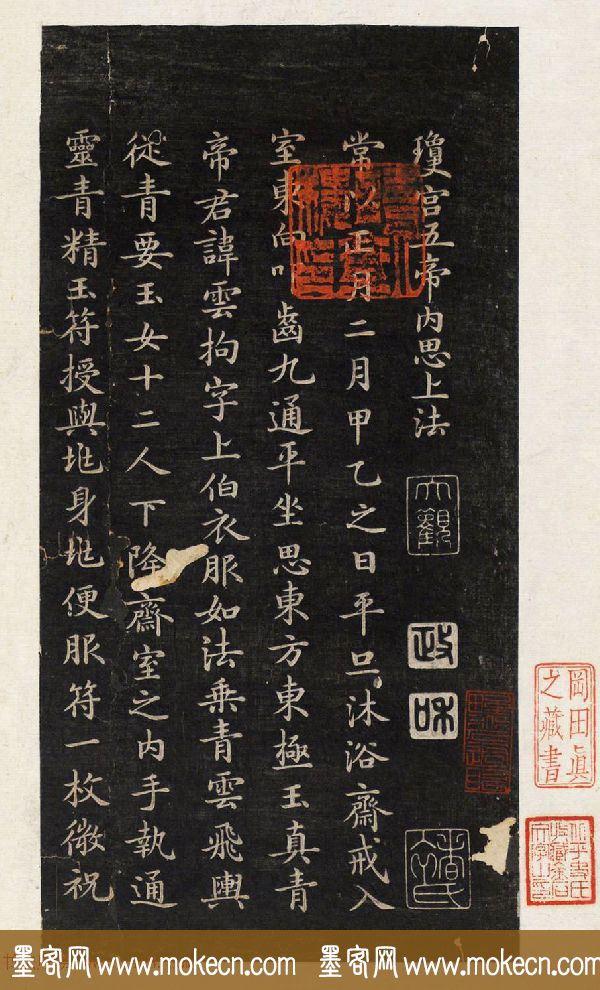 瓊宮五帝內思上法
常以正月二月甲乙之日平旦沐浴齋戒入
室東向叩齒九通平坐思東方東極玉真青
帝君諱雲拘字上伯衣服如法乘青雲飛輿
從青要玉女十二人下降齋室之內手執通
靈青精玉符授與兆身兆便服符一枚微祝
大觀
政和
岡田眞
之藏書
墨客网 www.mokecn.com 墨客网 www.mokecn.com